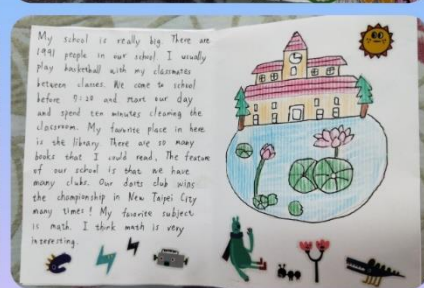 My school is really big. There are
1991 people in our school. I usually
play basketball with my classmates
between classes. We come to school
before 7:20 and start our day
and spend ten minutes cleaning the
classroom. My favorite place in here
is the library. There are so many
books that I could read. The feature
of our school is that we have
many clubs. Our darts club wins
the championship in New Taipei City
many times! My favorite subject
is math. I think math is very
interesting.